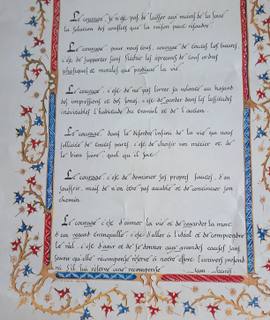 Le courage, ce n'est pas de laisser aux mains de la force
la solution des conflits que la raison peut résoudre.
Le courage pour nous tous, courage de toutes les heures
c'est de supporter sans fléchir les épreuves de tout ordre
physiques et morales que prodigue la vie.
Le courage, c'est de ne pas livrer sa volonté au hasard
des impressions et des forces, c'est de garder dans les lassitudes
inévitables l'habitude du travail et de l'action.
Le courage dans le désordre infini de la vie qui nous
sollicite de toutes parts, c'est de choisir un métier et de
le bien faire, quel qu'il soit.
Le courage, c'est de dominer ses propres fautes, d'en
souffrir, mais de n'en être pas accablé et de continuer son
chemin.
Le courage, c'est d'aimer la vie et de regarder la mort
d'un regard tranquille, c'est d'aller à l'idéal et de comprendre
le réel, c'est d'agir et de se donner aux grandes causes sans
savoir quelle récompense réserve à notre effort l'univers profond
ni s'il lui réserve une récompense. Jean Jaurès